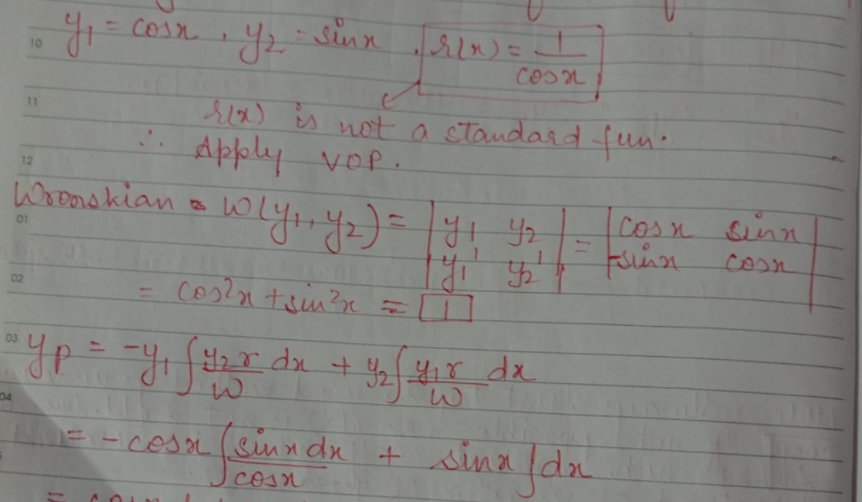 10 y₁ = cosx , y₂ = sinx , r(x) = 1/cosx
11 r(x) is not a standard fun.
∴ Apply VOP.
12
01 Wronskian = W(y₁, y₂) = |y₁ y₂; y₁' y₂'| = |cosx sinx; -sinx cosx|
02 = cos²x + sin²x = 1
03 yp = -y₁ ∫ y₂r/W dx + y₂ ∫ y₁r/W dx
04
= -cosx ∫ sinx dx/cosx + sinx ∫ dx